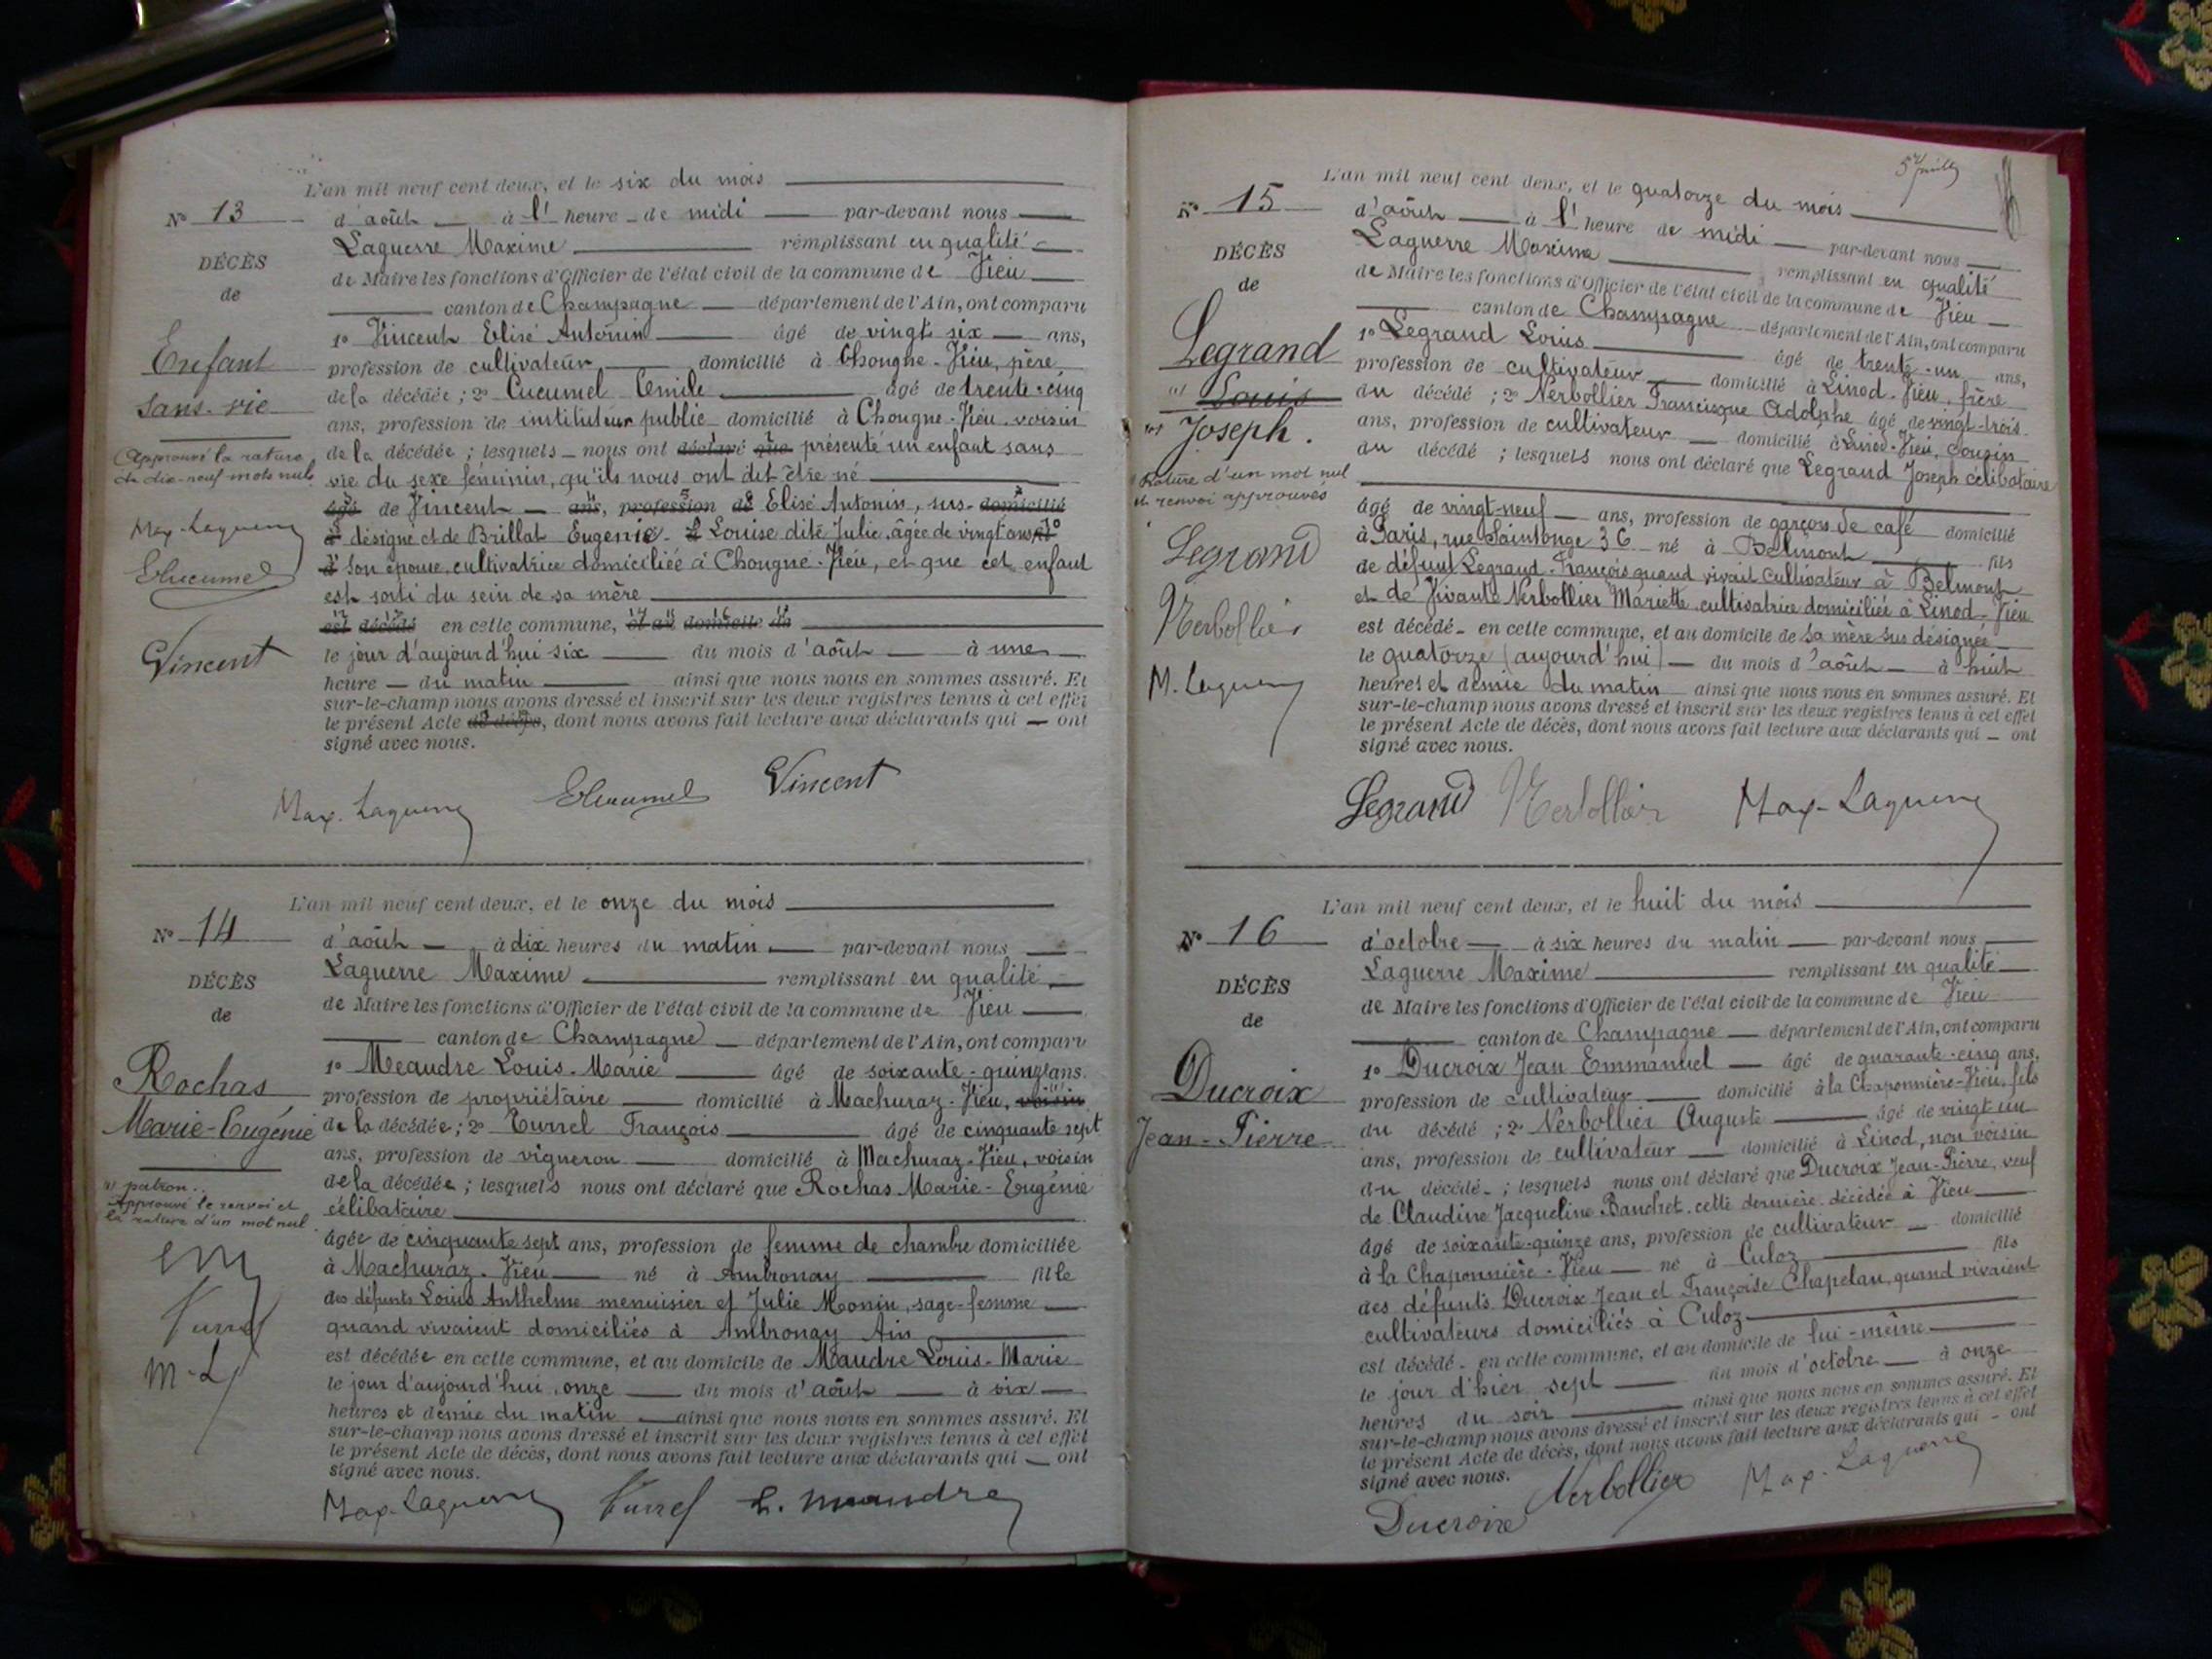 L'an mil neuf cent deux, et le six du mois
N° 13
d'août à l' heure de midi par-devant nous
DÉCÈS
de
Enfant
sans-vie
Laguerre Maxime remplissant en qualité
de Maire les fonctions d'Officier de l'état civil de la commune de Vieu
canton de Champagne département de l'Ain, ont comparu
1° Vincent Elisé Antonin âgé de vingt six ans,
profession de cultivateur domicilié à Chongne-Vieu, père
de la décédée ; 2° Cucumel Emile âgé de trente-cinq
ans, profession de instituteur public domicilié à Chongne-Vieu, voisin
de la décédée ; lesquels nous ont déclaré que présenté un enfant sans
vie du sexe féminin, qu'ils nous ont dit être né
âgé de Vincent ans, profession de Elisé Antonin, sus-domicilié
à désigné et de Brillat Eugenie Louise dite Julie, âgée de vingt ans
son épouse, cultivatrice domiciliée à Chongne-Vieu, et que cet enfant
est sorti du sein de sa mère
est décédé en cette commune, et au domicile de
le jour d'aujourd'hui six du mois d'août à une
heure du matin ainsi que nous nous en sommes assuré. Et
sur-le-champ nous avons dressé et inscrit sur les deux registres tenus à cet effet
le présent Acte de décès, dont nous avons fait lecture aux déclarants qui ont
signé avec nous.
Approuvé la rature
de dix-neuf mots nuls
Max. Laguerre
ECucumel
Vincent
Max. Laguerre ECucumel Vincent
L'an mil neuf cent deux, et le onze du mois
N° 14
d'août à dix heures du matin par-devant nous
DÉCÈS
de
Rochas
Marie-Eugénie
Laguerre Maxime remplissant en qualité
de Maire les fonctions d'Officier de l'état civil de la commune de Vieu
canton de Champagne département de l'Ain, ont comparu
1° Meaudre Louis-Marie âgé de soixante-quinze ans.
profession de propriétaire domicilié à Machuraz-Vieu, voisin
de la décédée ; 2° Turrel François âgé de cinquante sept
ans, profession de vigneron domicilié à Machuraz-Vieu, voisin
de la décédée ; lesquels nous ont déclaré que Rochas Marie-Eugénie
célibataire
âgée de cinquante sept ans, profession de femme de chambre domiciliée
à Machuraz-Vieu né à Ambronay fille
des défunts Louis Anthelme menuisier et Julie Monin, sage-femme
quand vivaient domiciliés à Ambronay Ain
est décédée en cette commune, et au domicile de Maudre Louis-Marie
le jour d'aujourd'hui, onze du mois d'août à six
heures et demie du matin ainsi que nous nous en sommes assuré. Et
sur-le-champ nous avons dressé et inscrit sur les deux registres tenus à cet effet
le présent Acte de décès, dont nous avons fait lecture aux déclarants qui ont
signé avec nous.
(1) patron.
Approuvé le renvoi et
la rature d'un mot nul
Turrel
M-L
Max. Laguerre Turrel L. Meaudre
5e Juillet
L'an mil neuf cent deux, et le quatorze du mois
N° 15
d'août à l' heure de midi par-devant nous
DÉCÈS
de
Legrand
(1) Louis
(1) Joseph.
Laguerre Maxime remplissant en qualité
de Maire les fonctions d'Officier de l'état civil de la commune de Vieu
canton de Champagne département de l'Ain, ont comparu
1° Legrand Louis âgé de trente-un ans,
profession de cultivateur domicilié à Linod-Vieu, frère
du décédé ; 2° Nerbollier Francisque Adolphe âgé de vingt-trois
ans, profession de cultivateur domicilié à Linod-Vieu, cousin
du décédé ; lesquels nous ont déclaré que Legrand Joseph célibataire
âgé de vingt-neuf ans, profession de garçon de café domicilié
à Paris, rue Saintonge 36 né à Belmont fils
de défunt Legrand François quand vivait cultivateur à Belmont
et de vivante Nerbollier Mariette cultivatrice domiciliée à Linod-Vieu
est décédé en cette commune, et au domicile de sa mère sus désignée
le quatorze (aujourd'hui) du mois d'août à huit
heures et demie du matin ainsi que nous nous en sommes assuré. Et
sur-le-champ nous avons dressé et inscrit sur les deux registres tenus à cet effet
le présent Acte de décès, dont nous avons fait lecture aux déclarants qui ont
signé avec nous.
Rature d'un mot nul
et renvoi approuvés
Legrand
Nerbollier
M. Laguerre
Legrand Nerbollier Max-Laguerre
L'an mil neuf cent deux, et le huit du mois
N° 16
d'octobre à six heures du matin par-devant nous
DÉCÈS
de
Ducroix
Jean-Pierre
Laguerre Maxime remplissant en qualité
de Maire les fonctions d'Officier de l'état civil de la commune de Vieu
canton de Champagne département de l'Ain, ont comparu
1° Ducroix Jean Emmanuel âgé de quarante-cinq ans,
profession de cultivateur domicilié à la Chaponnière-Vieu, fils
du décédé ; 2° Nerbollier Auguste âgé de vingt un
ans, profession de cultivateur domicilié à Linod, non voisin
du décédé ; lesquels nous ont déclaré que Ducroix Jean-Pierre, veuf
de Claudine Jacqueline Banchet, cette dernière décédée à Vieu
âgé de soixante-quinze ans, profession de cultivateur domicilié
à la Chaponnière-Vieu né à Culoz fils
des défunts Ducroix Jean et Françoise Chapelau, quand vivaient
cultivateurs domiciliés à Culoz
est décédé en cette commune, et au domicile de lui-même
le jour d'hier sept du mois d'octobre à onze
heures du soir ainsi que nous nous en sommes assuré. Et
sur-le-champ nous avons dressé et inscrit sur les deux registres tenus à cet effet
le présent Acte de décès, dont nous avons fait lecture aux déclarants qui ont
signé avec nous.
Ducroix Nerbollier Max. Laguerre